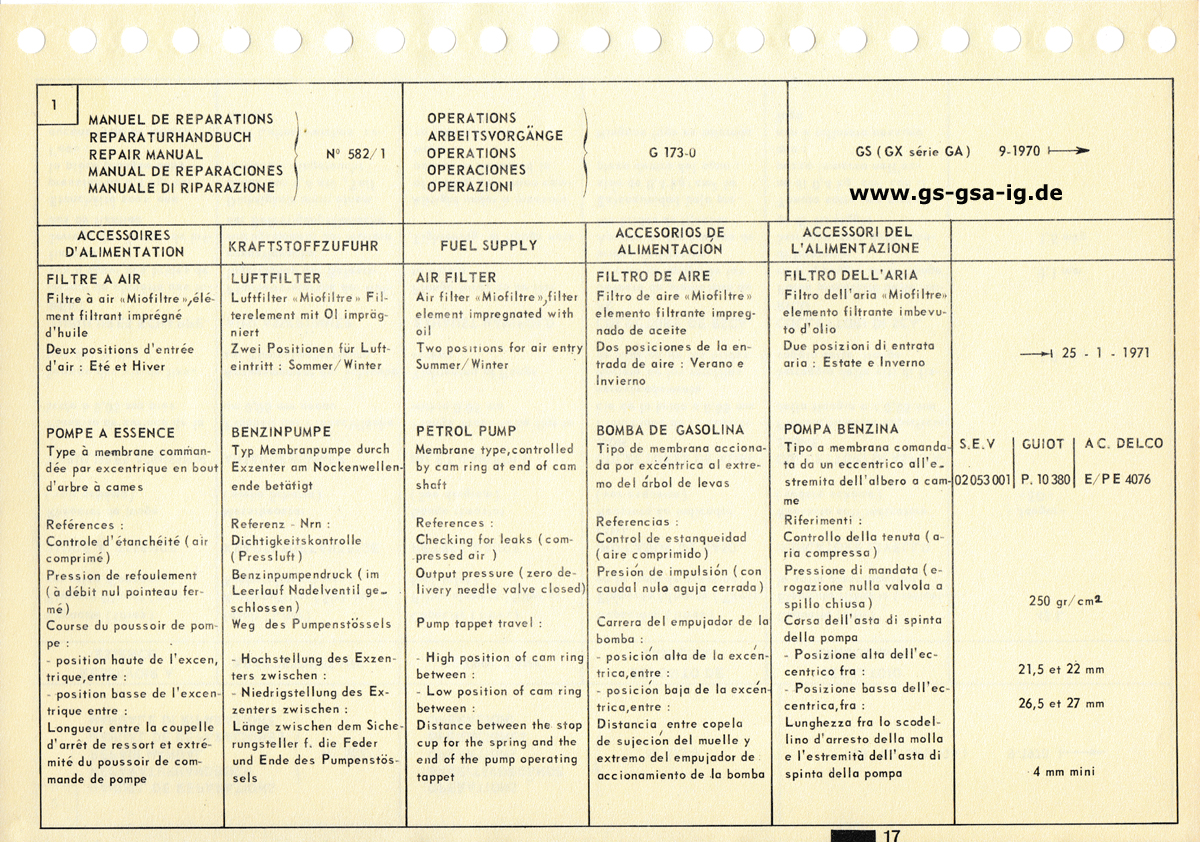 1
MANUEL DE REPARATIONS
REPARATURHANDBUCH
REPAIR MANUAL
MANUAL DE REPARACIONES
MANUALE DI RIPARAZIONE
Nº 582/1
OPERATIONS
ARBEITSVORGÄNGE
OPERATIONS
OPERACIONES
OPERAZIONI
G 173-0
GS (GX série GA) 9-1970
www.gs-gsa-ig.de
ACCESSOIRES
D'ALIMENTATION
FILTRE A AIR
Filtre à air «Miofiltre», élé-
ment filtrant imprégné
d'huile
Deux positions d'entrée
d'air : Eté et Hiver
POMPE A ESSENCE
Type à membrane comman-
dée par excentrique en bout
d'arbre à cames
Références :
Controle d'étanchéité (air
comprimé)
Pression de refoulement
(à débit nul pointeau fer-
mé)
Course du poussoir de pom-
pe :
- position haute de l'excen,
trique,entre :
- position basse de l'excen-
trique entre :
Longueur entre la coupelle
d'arrêt de ressort et extré-
mité du poussoir de com-
mande de pompe
KRAFTSTOFFZUFUHR
LUFTFILTER
Luftfilter «Miofiltre» Fil-
terelement mit Ol impräg-
niert
Zwei Positionen für Luft-
eintritt : Sommer/Winter
BENZINPUMPE
Typ Membranpumpe durch
Exzenter am Nockenwellen-
ende betätigt
Referenz - Nrn :
Dichtigkeitskontrolle
(Pressluft)
Benzinpumpendruck (im
Leerlauf Nadelventil ge-
schlossen)
Weg des Pumpenstössels
- Hochstellung des Exzen-
ters zwischen :
- Niedrigstellung des Ex-
zenters zwischen :
Länge zwischen dem Siche-
rungsteller f. die Feder
und Ende des Pumpenstös-
sels
FUEL SUPPLY
AIR FILTER
Air filter «Miofiltre», filter
element impregnated with
oil
Two positions for air entry
Summer/Winter
PETROL PUMP
Membrane type, controlled
by cam ring at end of cam
shaft
References :
Checking for leaks (com-
pressed air )
Output pressure (zero de-
livery needle valve closed)
Pump tappet travel :
- High position of cam ring
between :
- Low position of cam ring
between :
Distance between the stop
cup for the spring and the
end of the pump operating
tappet
ACCESORIOS DE
ALIMENTACIÓN
FILTRO DE AIRE
Filtro de aire «Miofiltre»
elemento filtrante impreg-
nado de aceite
Dos posiciones de la en-
trada de aire : Verano e
Invierno
BOMBA DE GASOLINA
Tipo de membrana acciona-
da por excéntrica al extre-
mo del árbol de levas
Referencias :
Control de estanqueidad
(aire comprimido)
Presión de impulsión (con
caudal nulo aguja cerrada)
Carrera del empujador de la
bomba :
- posición alta de la excén-
trica,entre :
- posición baja de la excén-
trica,entre :
Distancia entre copela
de sujeción del muelle y
extremo del empujador de
accionamiento de la bomba
ACCESSORI DEL
L'ALIMENTAZIONE
FILTRO DELL'ARIA
Filtro dell'aria «Miofiltre»
elemento filtrante imbevu-
to d'olio
Due posizioni di entrata
aria : Estate e Inverno
POMPA BENZINA
Tipo a membrana comanda-
ta da un eccentrico all'e-
stremita dell'albero a cam-
me
Riferimenti :
Controllo della tenuta (a-
ria compressa)
Pressione di mandata (e-
rogazione nulla valvola a
spillo chiusa)
Corsa dell'asta di spinta
della pompa
- Posizione alta dell'ec-
centrico fra :
- Posizione bassa dell'ec-
centrica,fra :
Lunghezza fra lo scodel-
lino d'arresto della molla
e l'estremità dell'asta di
spinta della pompa
25 - 1 - 1971
S.E.V GUIOT A C. DELCO
02 053 001 P. 10 380 E/PE 4076
250 gr/cm2
21,5 et 22 mm
26,5 et 27 mm
4 mm mini
17